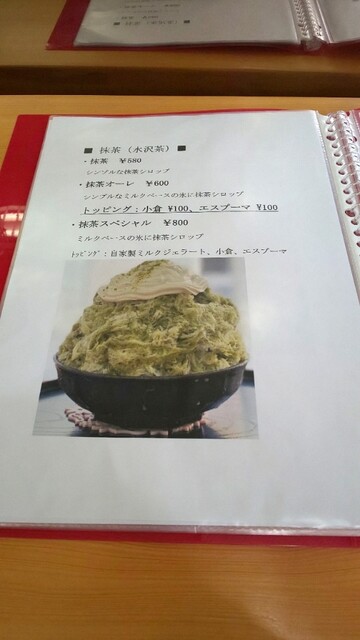 ■ 抹茶（水沢茶） ■
・抹茶 ￥580
シンプルな抹茶シロップ
・抹茶オーレ ￥600
シンプルなミルクベースの氷に抹茶シロップ
トッピング：小倉 ¥100、エスプーマ ¥100
・抹茶スペシャル ￥800
ミルクベースの氷に抹茶シロップ
ﾄｯﾋﾟﾝｸﾞ：自家製ミルクジェラート、小倉、エスプーマ